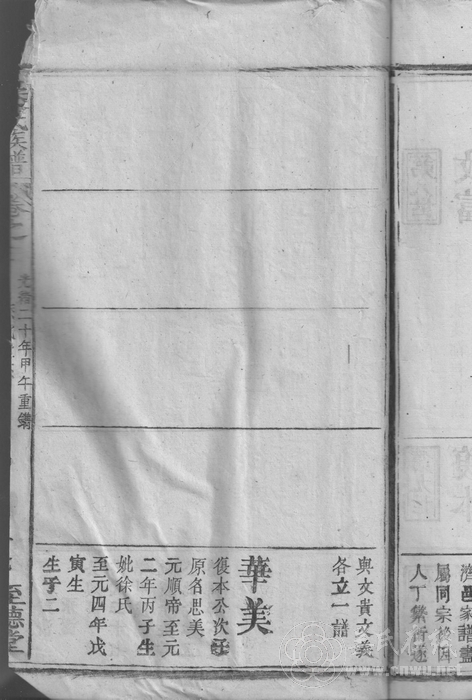 濟西家譜載
屬同宗於
人丁繁衍
與文貴文義
各立一譜
華美
復本公次子
原名思美
元順帝至元
二年丙子生
妣徐氏
至元四年戊
寅生
生子二
氏族譜
卷之
光緒二十年甲午重鐫
至德堂
www.cnwu.net